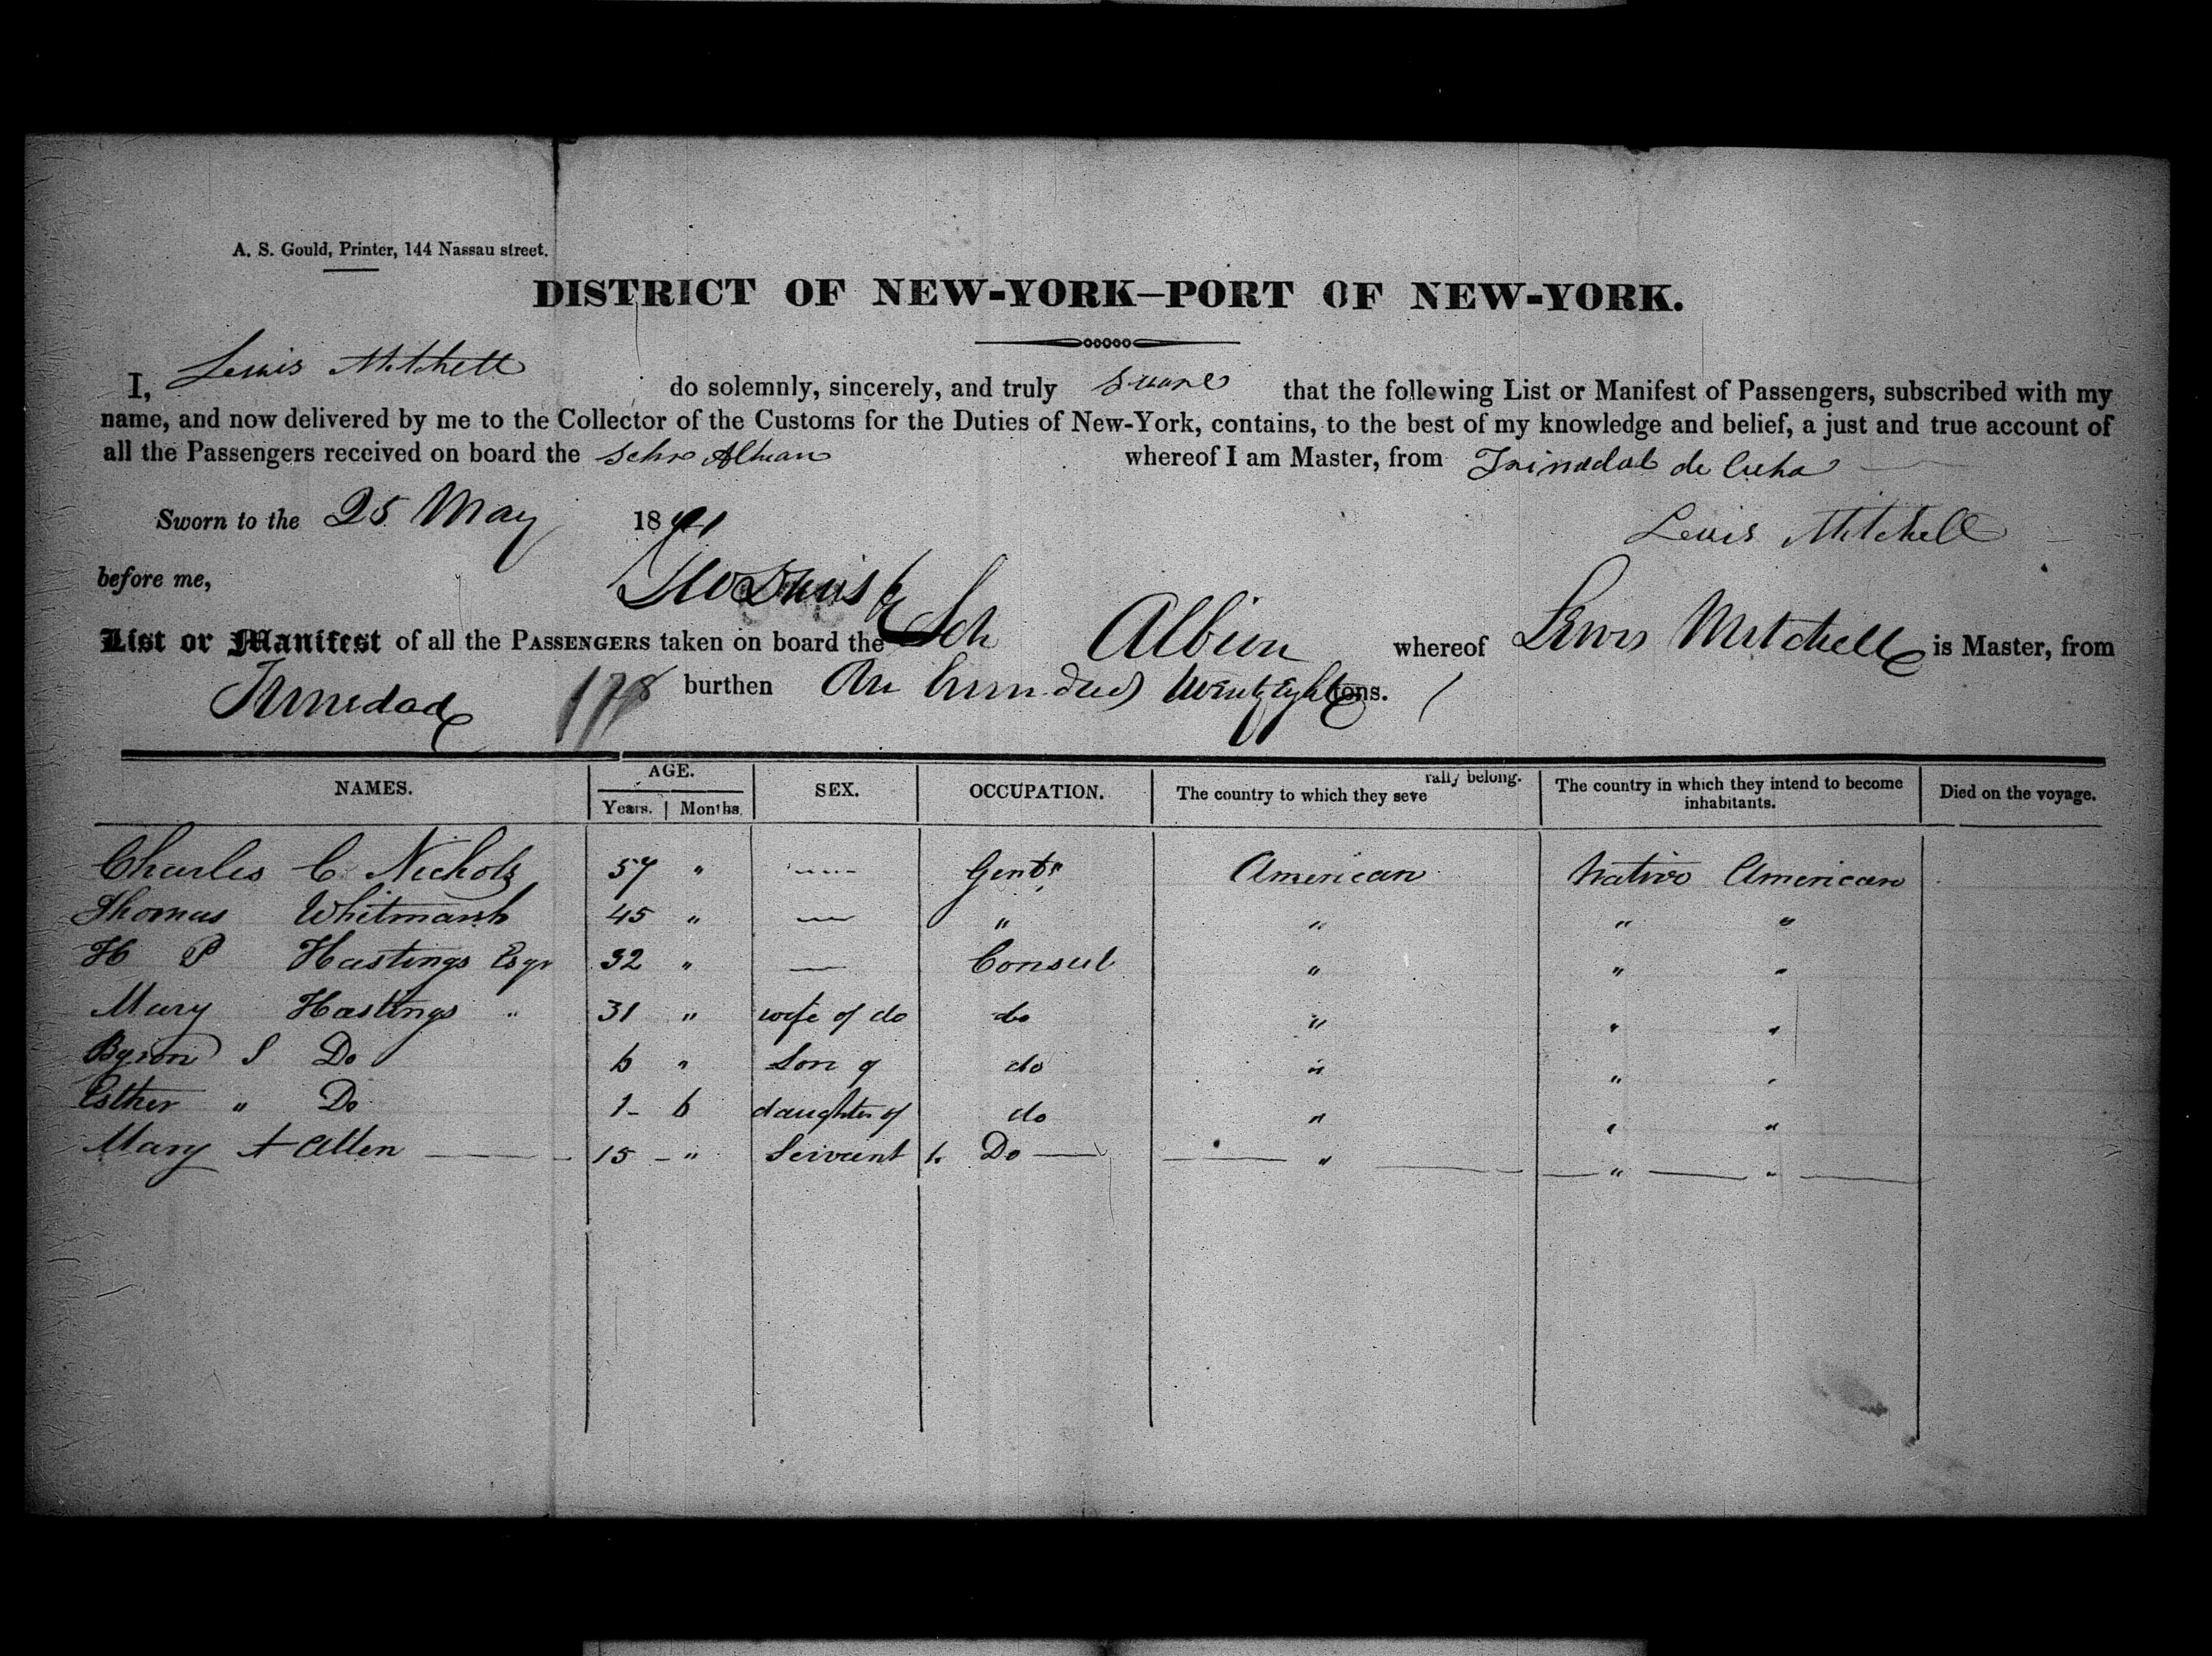 A. S. Gould, Printer, 144 Nassau street.
DISTRICT OF NEW-YORK—PORT OF NEW-YORK.
I, Lewis Mitchell do solemnly, sincerely, and truly swore that the following List or Manifest of Passengers, subscribed with my
name, and now delivered by me to the Collector of the Customs for the Duties of New-York, contains, to the best of my knowledge and belief, a just and true account of
all the Passengers received on board the Schr Albion whereof I am Master, from Trinedad de Cuba
Sworn to the 25 May 1841 Lewis Mitchell
before me,
List or Manifest of all the PASSENGERS taken on board the Sch Albion whereof Lewis Mitchell is Master, from
Trinedad 128 burthen One hundred twenty eight tons.
NAMES. AGE. Years. Months. SEX. OCCUPATION. The country to which they severally belong. The country in which they intend to become inhabitants. Died on the voyage.
Charles C. Nichols 57 " —— Gentn American Native American
Thomas Whitmarsh 45 " — " " " "
H P Hastings Esqr 32 " — Consul " " "
Mary Hastings " 31 " wife of do do " " "
Byron S Do 6 " Son of do " " "
Esther " Do 1 - 6 daughter of do " " "
Mary A Allen —— 15 - " Servant to Do — " " "